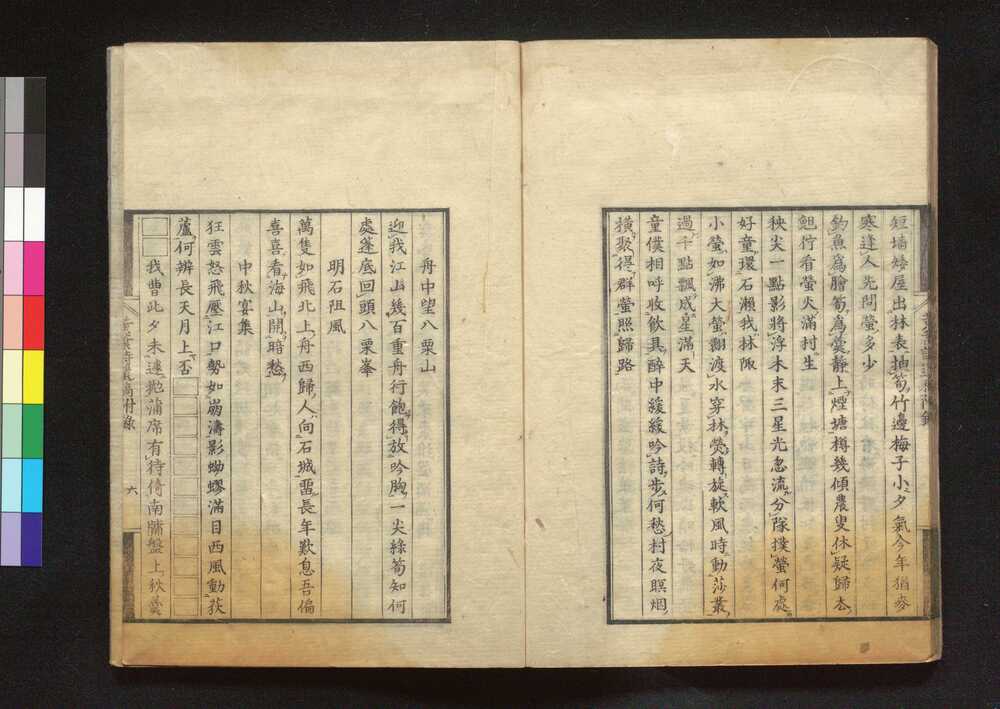 短墻矮屋出林表抽筍竹邊梅子小夕氣今年猶麥
寒逢人先問螢多少
釣魚爲膾筍爲羹靜上煙塘樽幾傾農叟休疑歸太
看螢火滿村生
秧尖一點影將浮木末三星光忽流分隊撲螢何處
好童環石瀨我林陬
小螢如沸大螢翻渡水穿林熒轉旋軟風時動莎叢
過千點飄成星滿天
童僕相呼收飲具醉中緩緩吟詩步何愁村夜暝烟
橫聚得群螢照歸路
舟中望八栗山
迎我江山幾百重舟行飽得放吟胸一尖綠筍知何
處蓬底回頭八栗峯
明石阻風
萬隻如飛北上舟西歸人向石城留長年歎息吾偏
喜喜看海山開暗愁
中秋宴集
狂雲怒飛壓江口勢如崩濤影蚴蟉滿目西風動荻
蘆何辨長天月上否
我曹此夕未遽抛蒲席有待倚南牖盤上秋羹
六